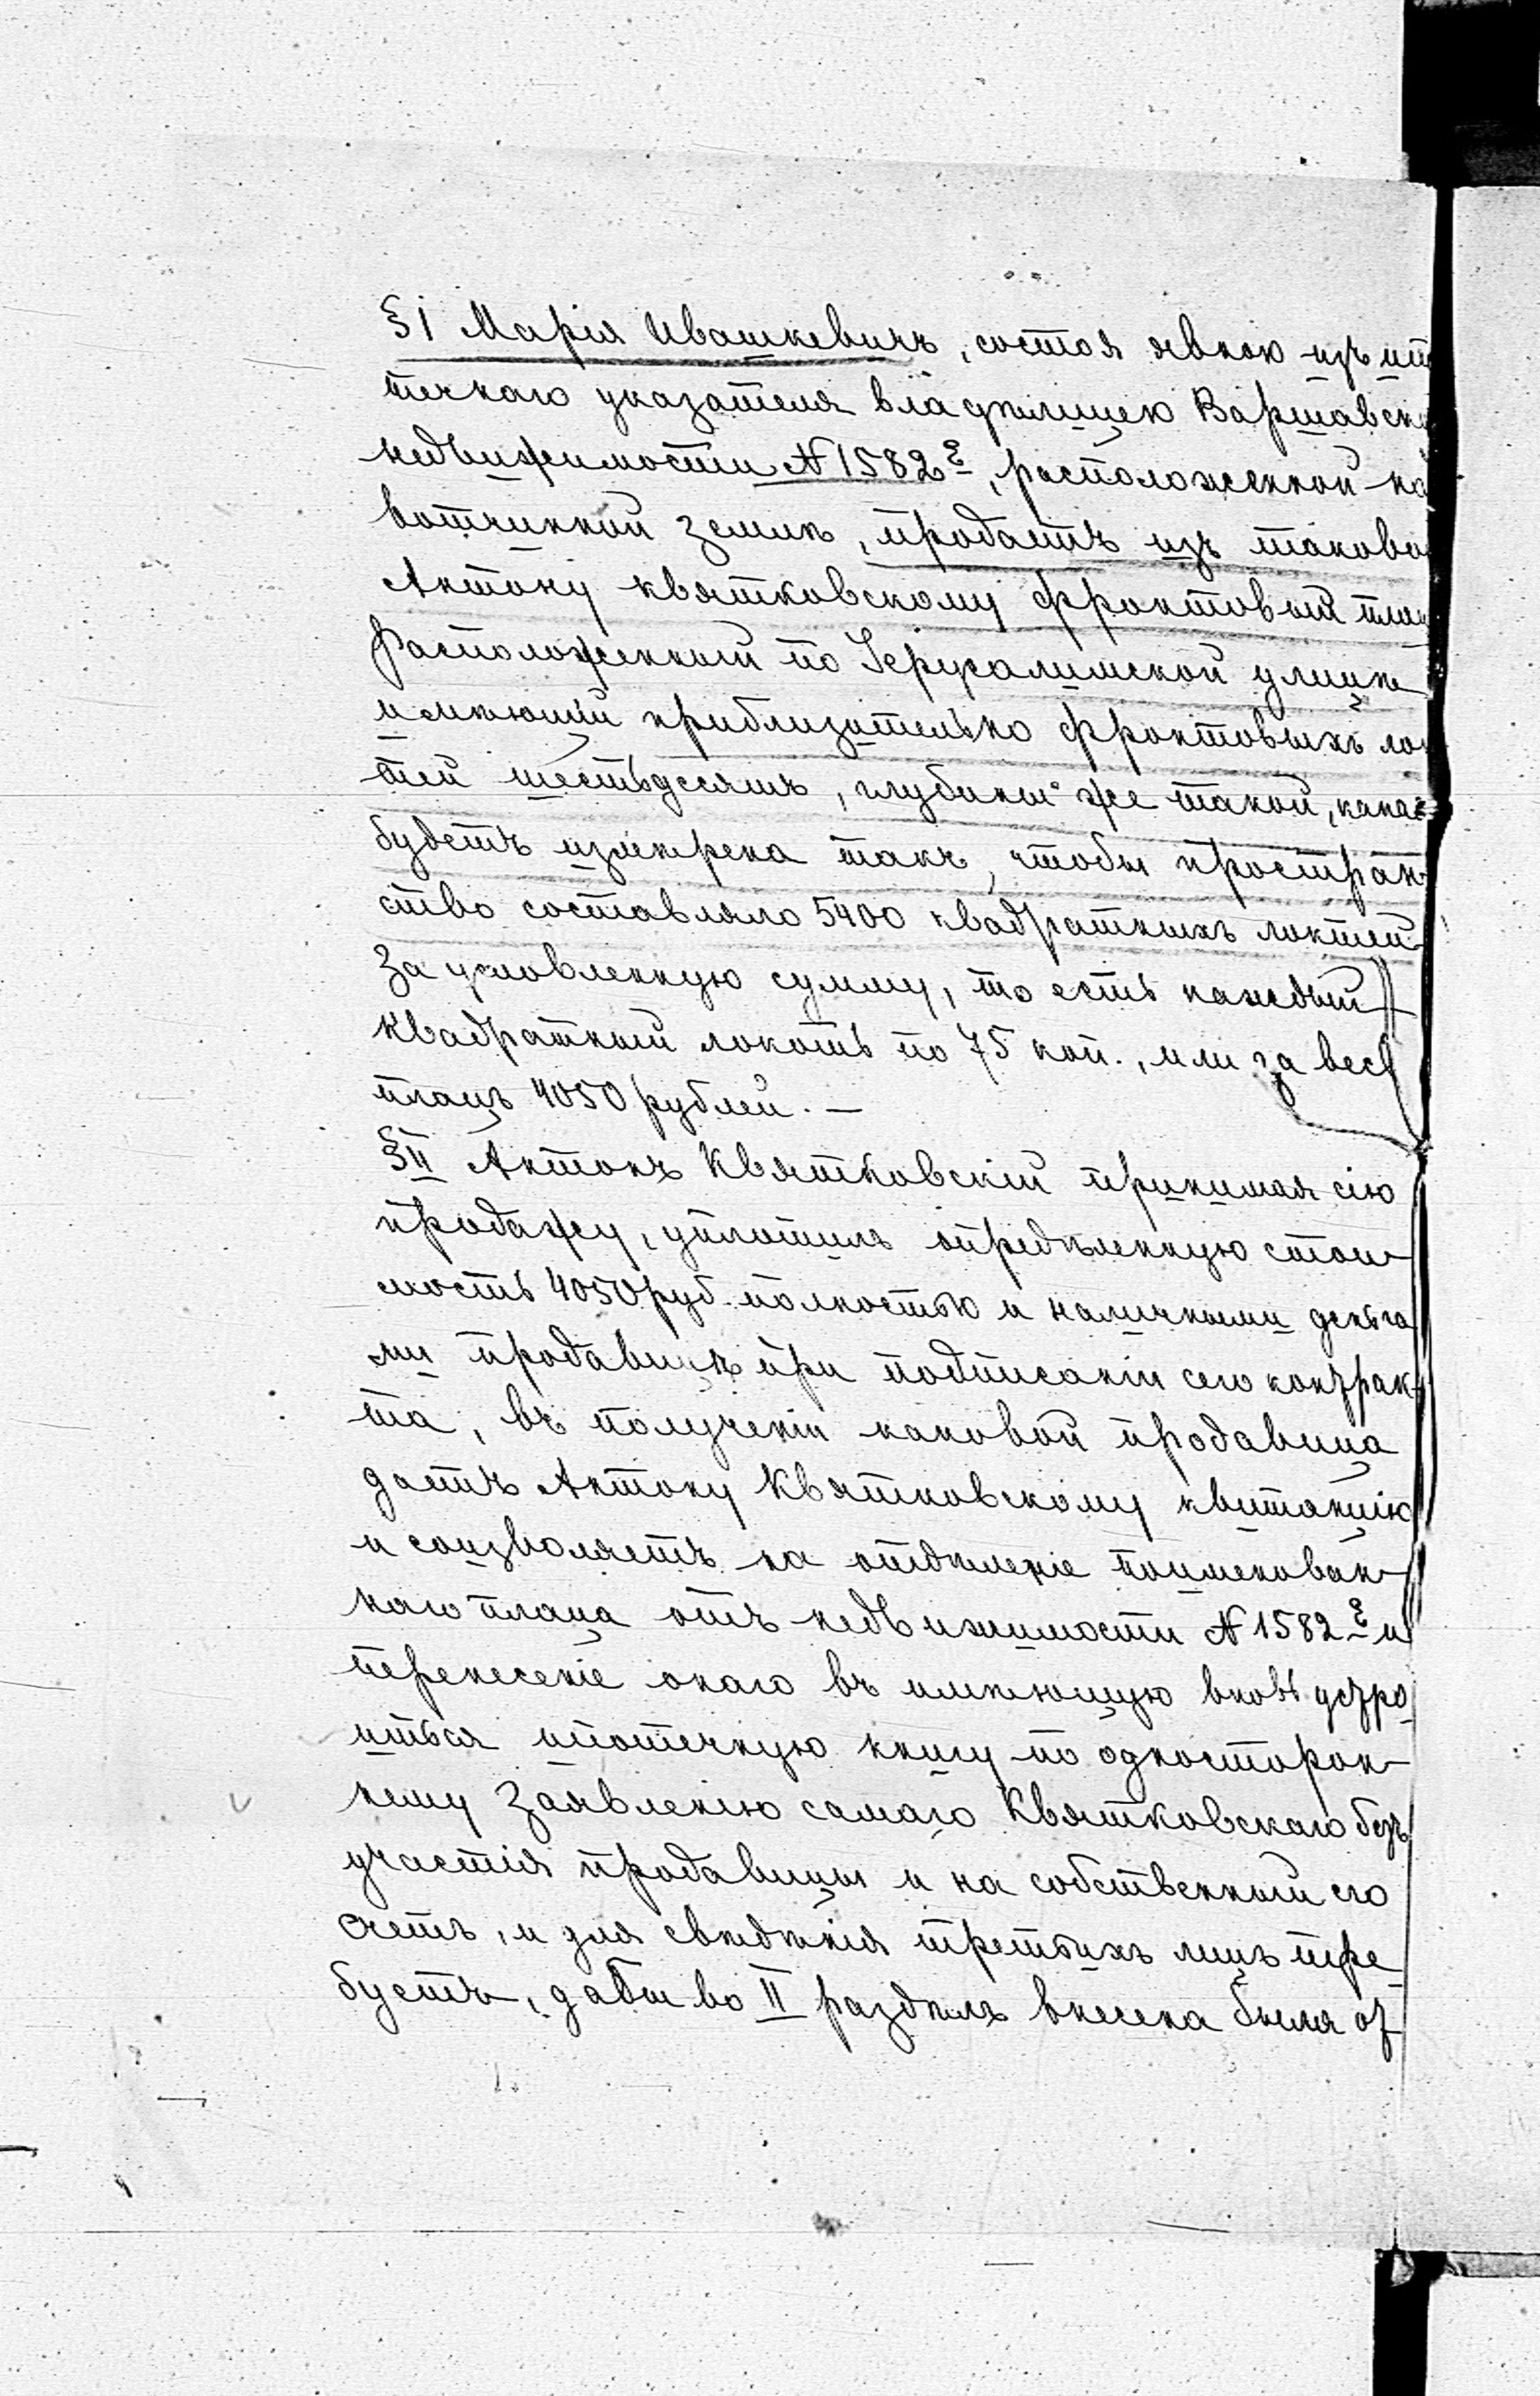 § I Марія Ивашкевичъ, состоя явною изъ ипо
течнаго указателя владѣлицею Варшавско
недвижимости № 1582ᵍ, расположенной на
вотчинной землѣ, продаетъ изъ таково
Антону Квятковскому фронтовый плац
расположенный по Іерусалимской улицѣ
имѣющій приблизительно фронтовыхъ лок
тей шестьдесятъ, глубины же такой, какая
будетъ измѣрена такъ, чтобы простран
ство составляло 5400 квадратныхъ локтей
за условленную сумму, то есть каждый
квадратный локоть по 75 коп., или за весь
плацъ 4050 рублей. —
§ II Антонъ Квятковскій принимая сію
продажу, уплатилъ опредѣленную стои
мость 4050 руб. полностью и наличными деньга
ми продавицѣ при подписаніи сего контрак
та, въ полученіи каковой продавица
даетъ Антону Квятковскому квитанцію
и соизволяетъ на отдѣленіе поименован
наго плаца отъ недвижимости № 1582ᵍ и
перенесеніе онаго въ имѣющую вновь устро
иться ипотечную книгу по односторон
нему заявленію самаго Квятковскаго безъ
участія продавицы и на собственный его
счетъ, и для свѣдѣнія третьихъ лицъ тре
буетъ, дабы во II раздѣлѣ внесена была от